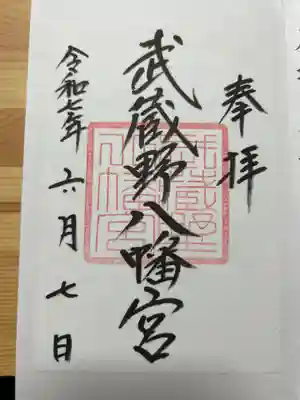 奉拝
武蔵野八幡宮
令和七年六月七日
武蔵野八幡宮